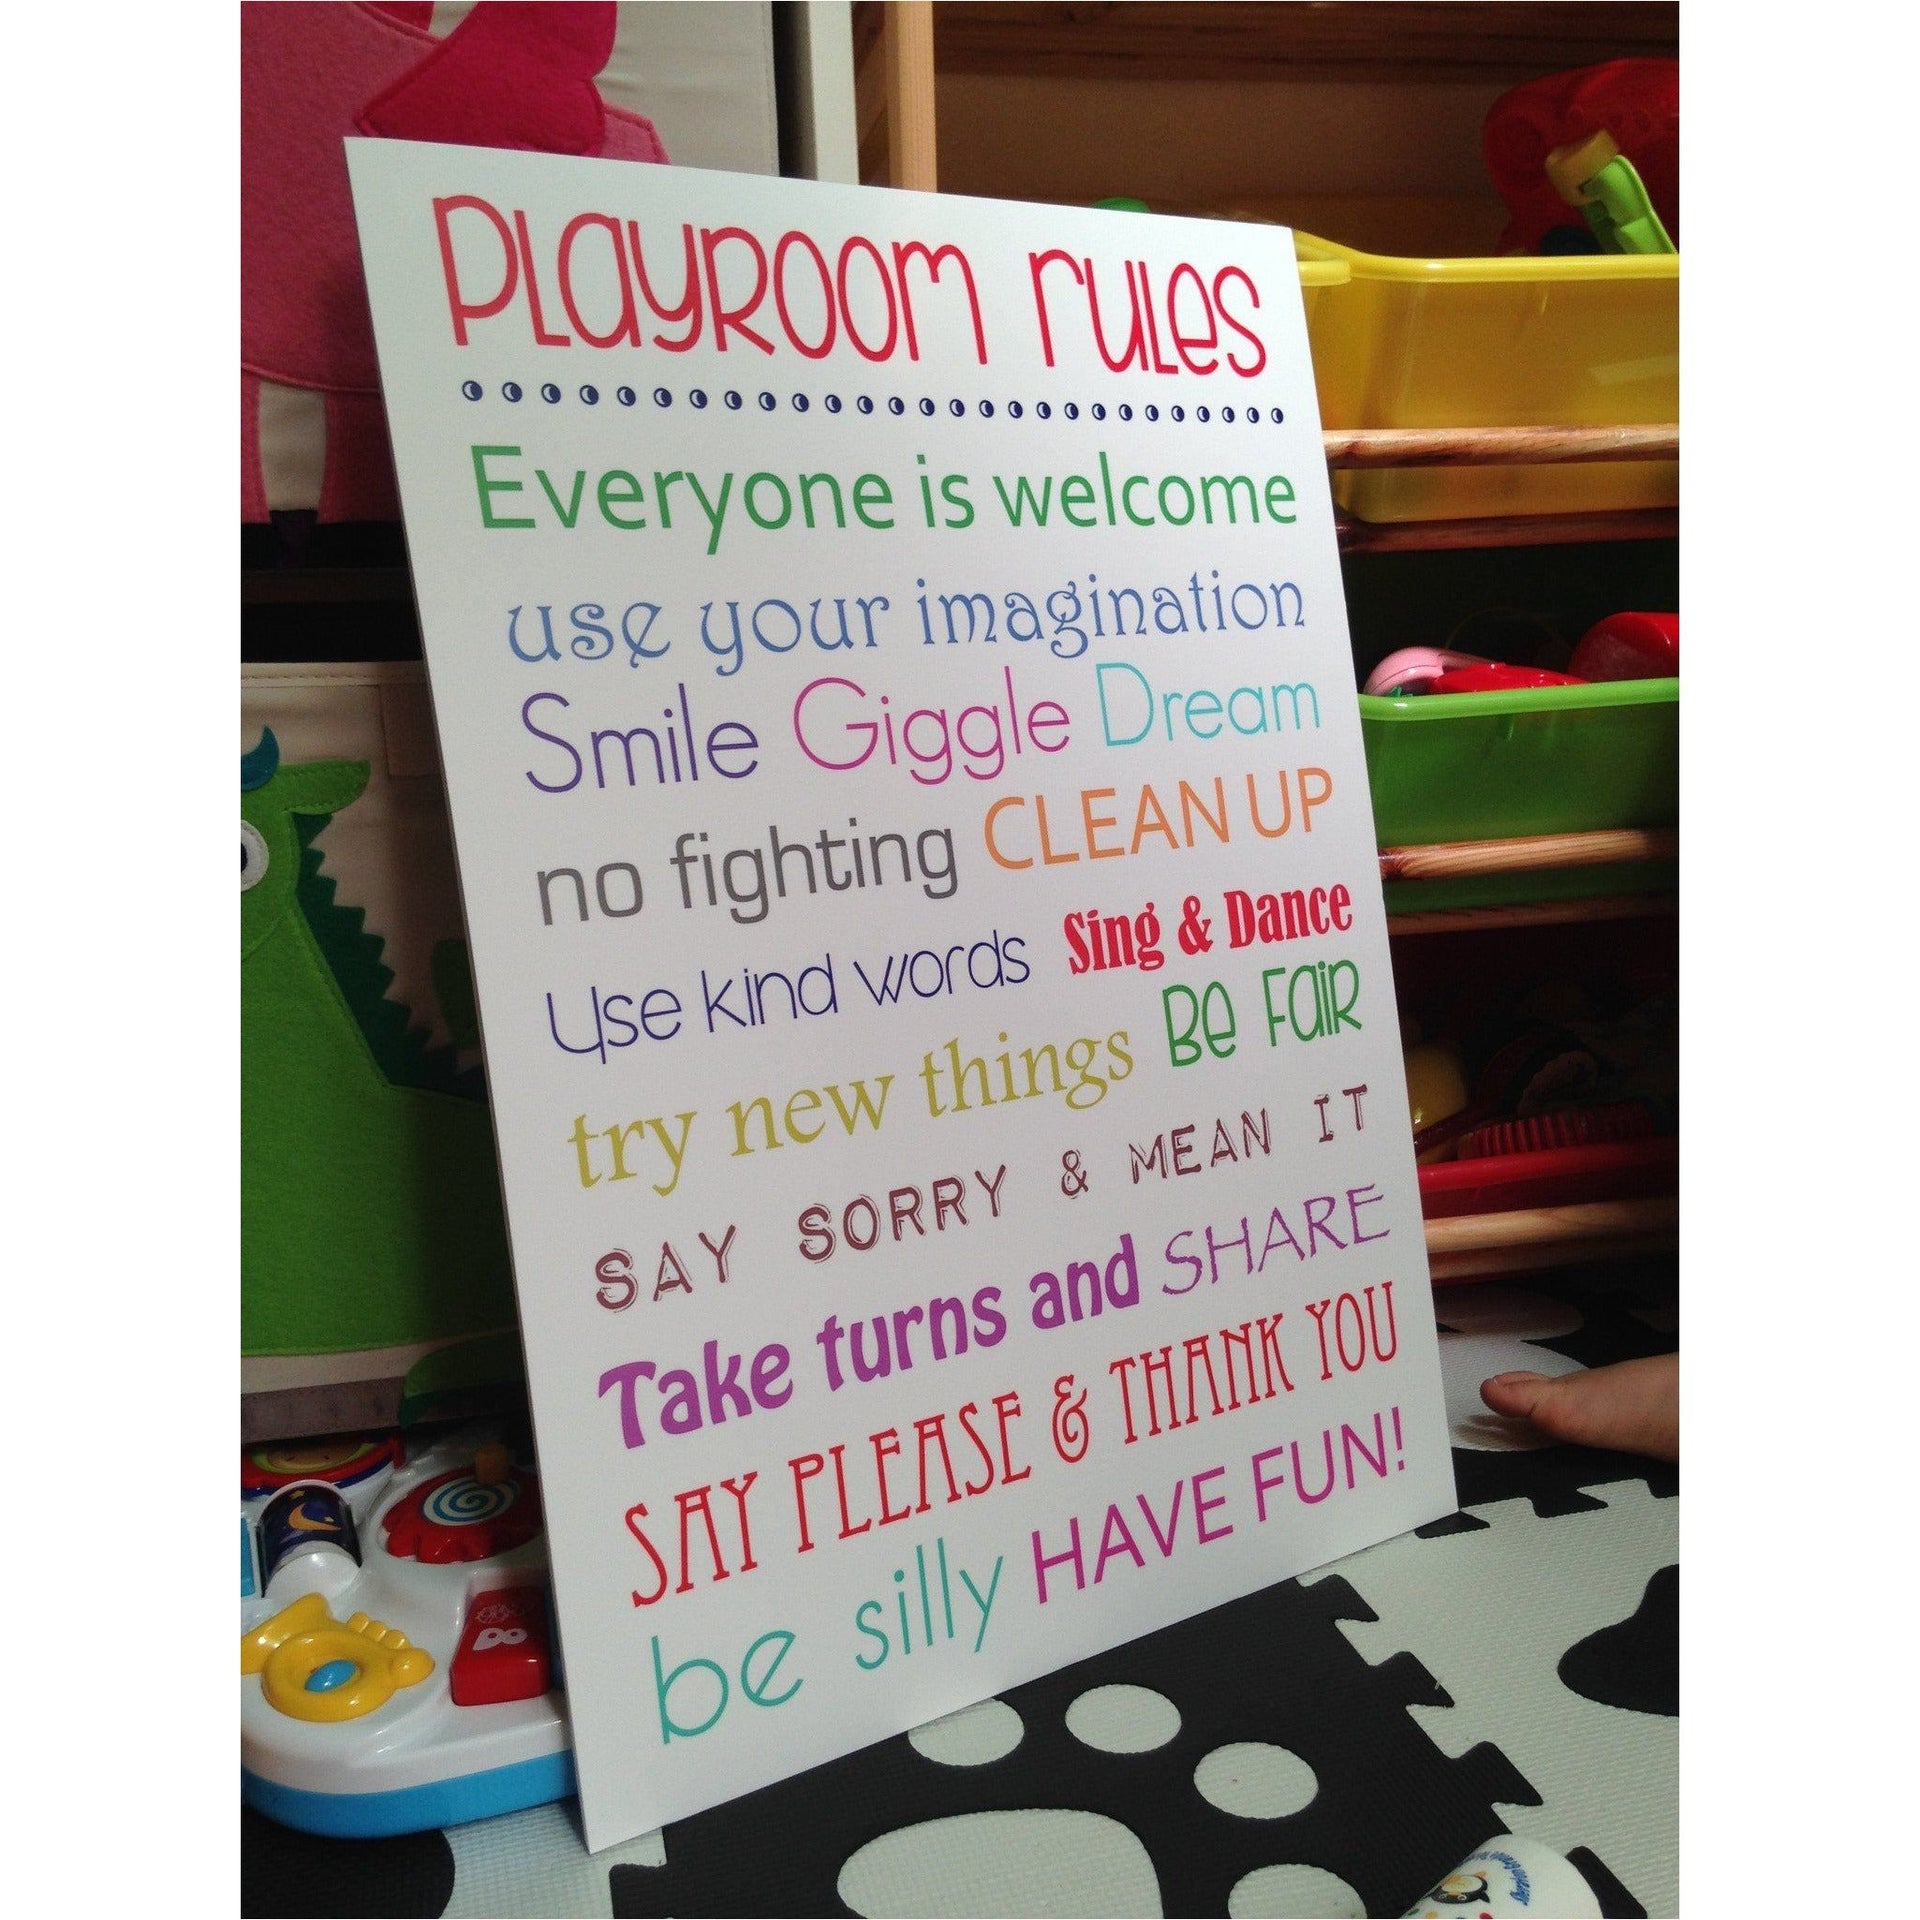 PLAYROOM rULes
Everyone is welcome
use your imagination
Smile Giggle Dream
no fighting CLEAN UP
Use kind words Sing & Dance
try new things Be Fair
SAY SORRY & MEAN IT
Take turns and SHARE
SAY PLEASE & THANK YOU
be silly HAVE FUN!
DO